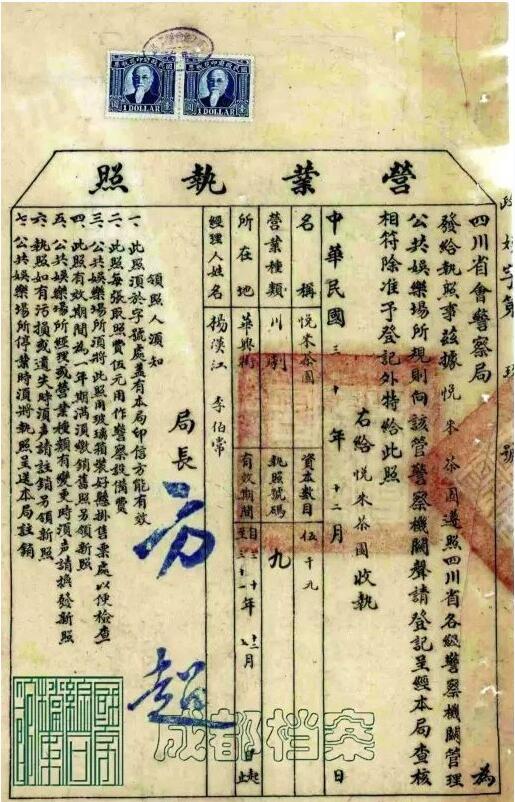 1 DOLLAR
1 DOLLAR
營業執照
字第 號
四川省會警察局 為
發給執照事茲據 悅來茶園 遵照四川省各級警察機關管理
公共娛樂場所規則向該管警察機關聲請登記呈經本局查核
相符除准予登記外特給此照
右給 悅來茶園 收執
中華民國三十年十二月 日
名稱 悅來茶園 資本數目 伍千元
營業種類 川劇 執照號碼 九
所在地 華興街 有效期間 自三十年十二月 日起 至三十一年 月 日止
經理人姓名 楊漢江 李伯常
領照人須知
一、此照須於字號處蓋有本局印信方能有效
二、此照每張取照費伍元用作警察設備費
三、公共娛樂場所須將此照用玻璃箱裝好懸掛售票處以便檢查
四、此照有效期間為一年期滿須繳銷舊照另領新照
五、公共娛樂場所經理或營業種類有變更時須声請換發新照
六、執照如有污損或遺失時須声請註銷另領新照
七、公共娛樂場所停業時須將執照呈送本局註銷
局長 方超
成都档案